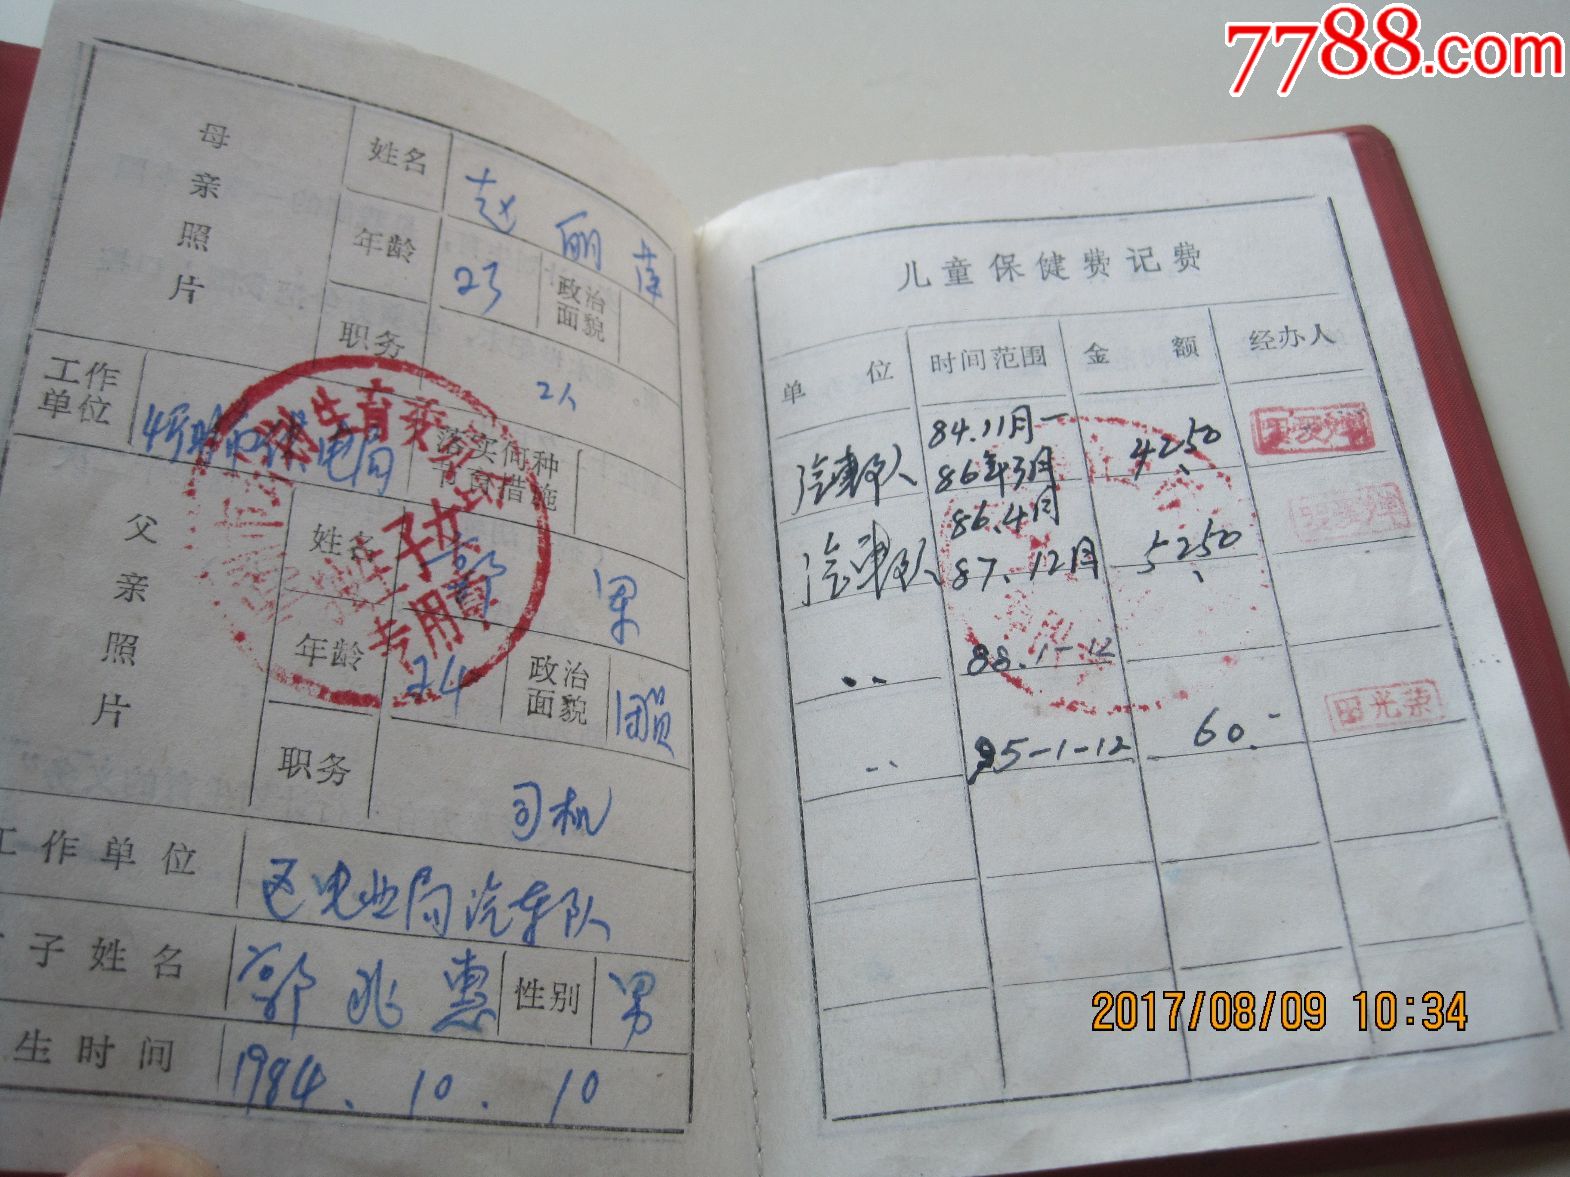 7788.com
母亲照片
姓名
赵丽
年龄
23
政治面貌
职务
工人
工作单位
供电局
落实何种节育措施
父亲照片
姓名
郭军
年龄
24
政治面貌
团员
职务
司机
工作单位
区电业局汽车队
子姓名
郭兆惠
性别
男
生时间
1984.10.10
生育委
独生子女
专用章
儿童保健费记费
单位 时间范围 金额 经办人
汽车队 84.11月-86年3月 42.50
汽车队 86.4月 87.12月 52.50
〃 88.1-12
〃 95-1-12 60.-
2017/08/09 10:34